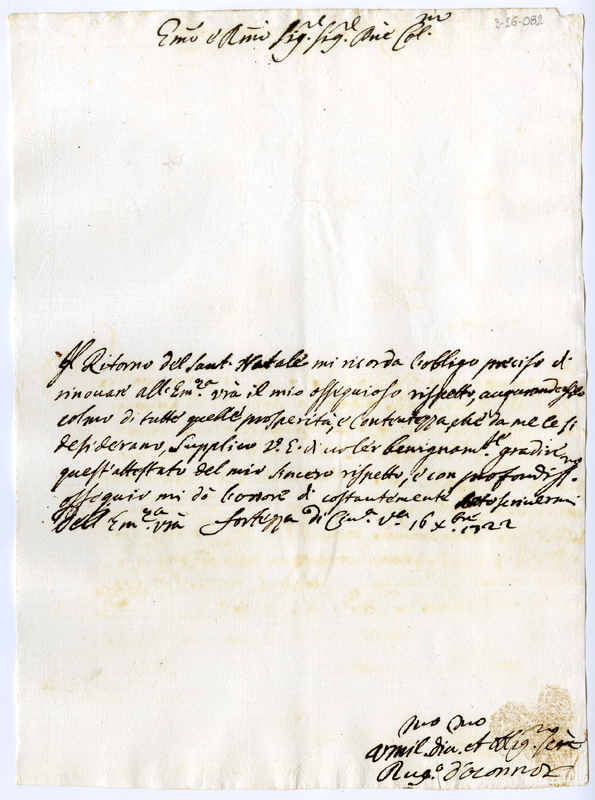 3-16-082
Em̃o e Rm̃o Sig.re Sig.re Prñe Col.mo
Il Ritorno del Sant. Natale mi ricorda l'obligo preciso di
rinouare all'Em.za Vrã il mio osseguioso rispetto, augurandoglelo
colmo di tutte quelle prosperità, e contentezza, che da me le si
desiderano, Supplico V. E. di uoler benignam.te gradire
quest'attestato del mio sincero rispetto, e con profondiss.mo
osseguio mi dò l'honore di costantemente sotoscriuermi
Dell'Em.za Vrã Fortezza di Ciu.a V.a 16 Xbre 1722
Vmil. diu. et oblig. Serre
Rug.o d'oconnor